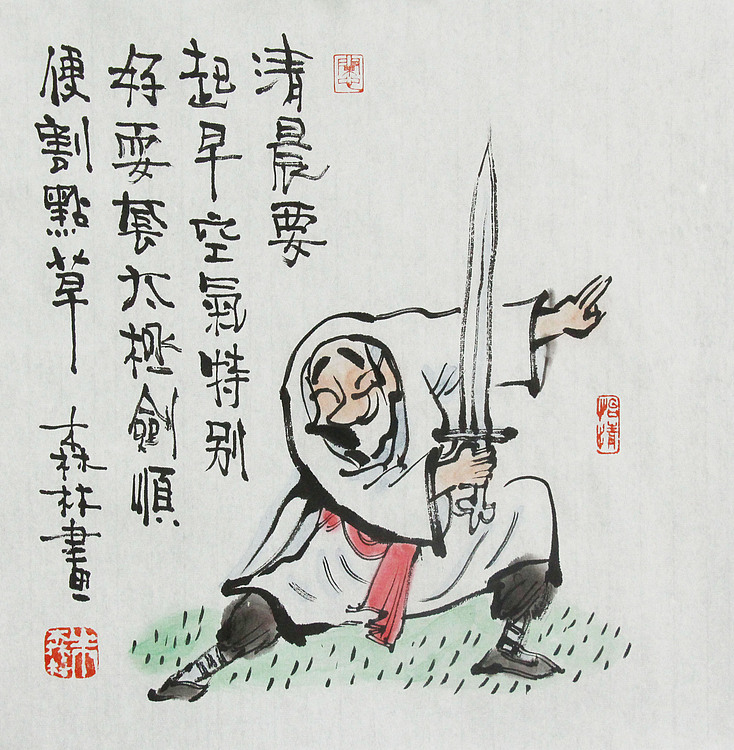 清晨要
起早空氣特别
好耍套太極劍順
便割點草
森林畫
怡情